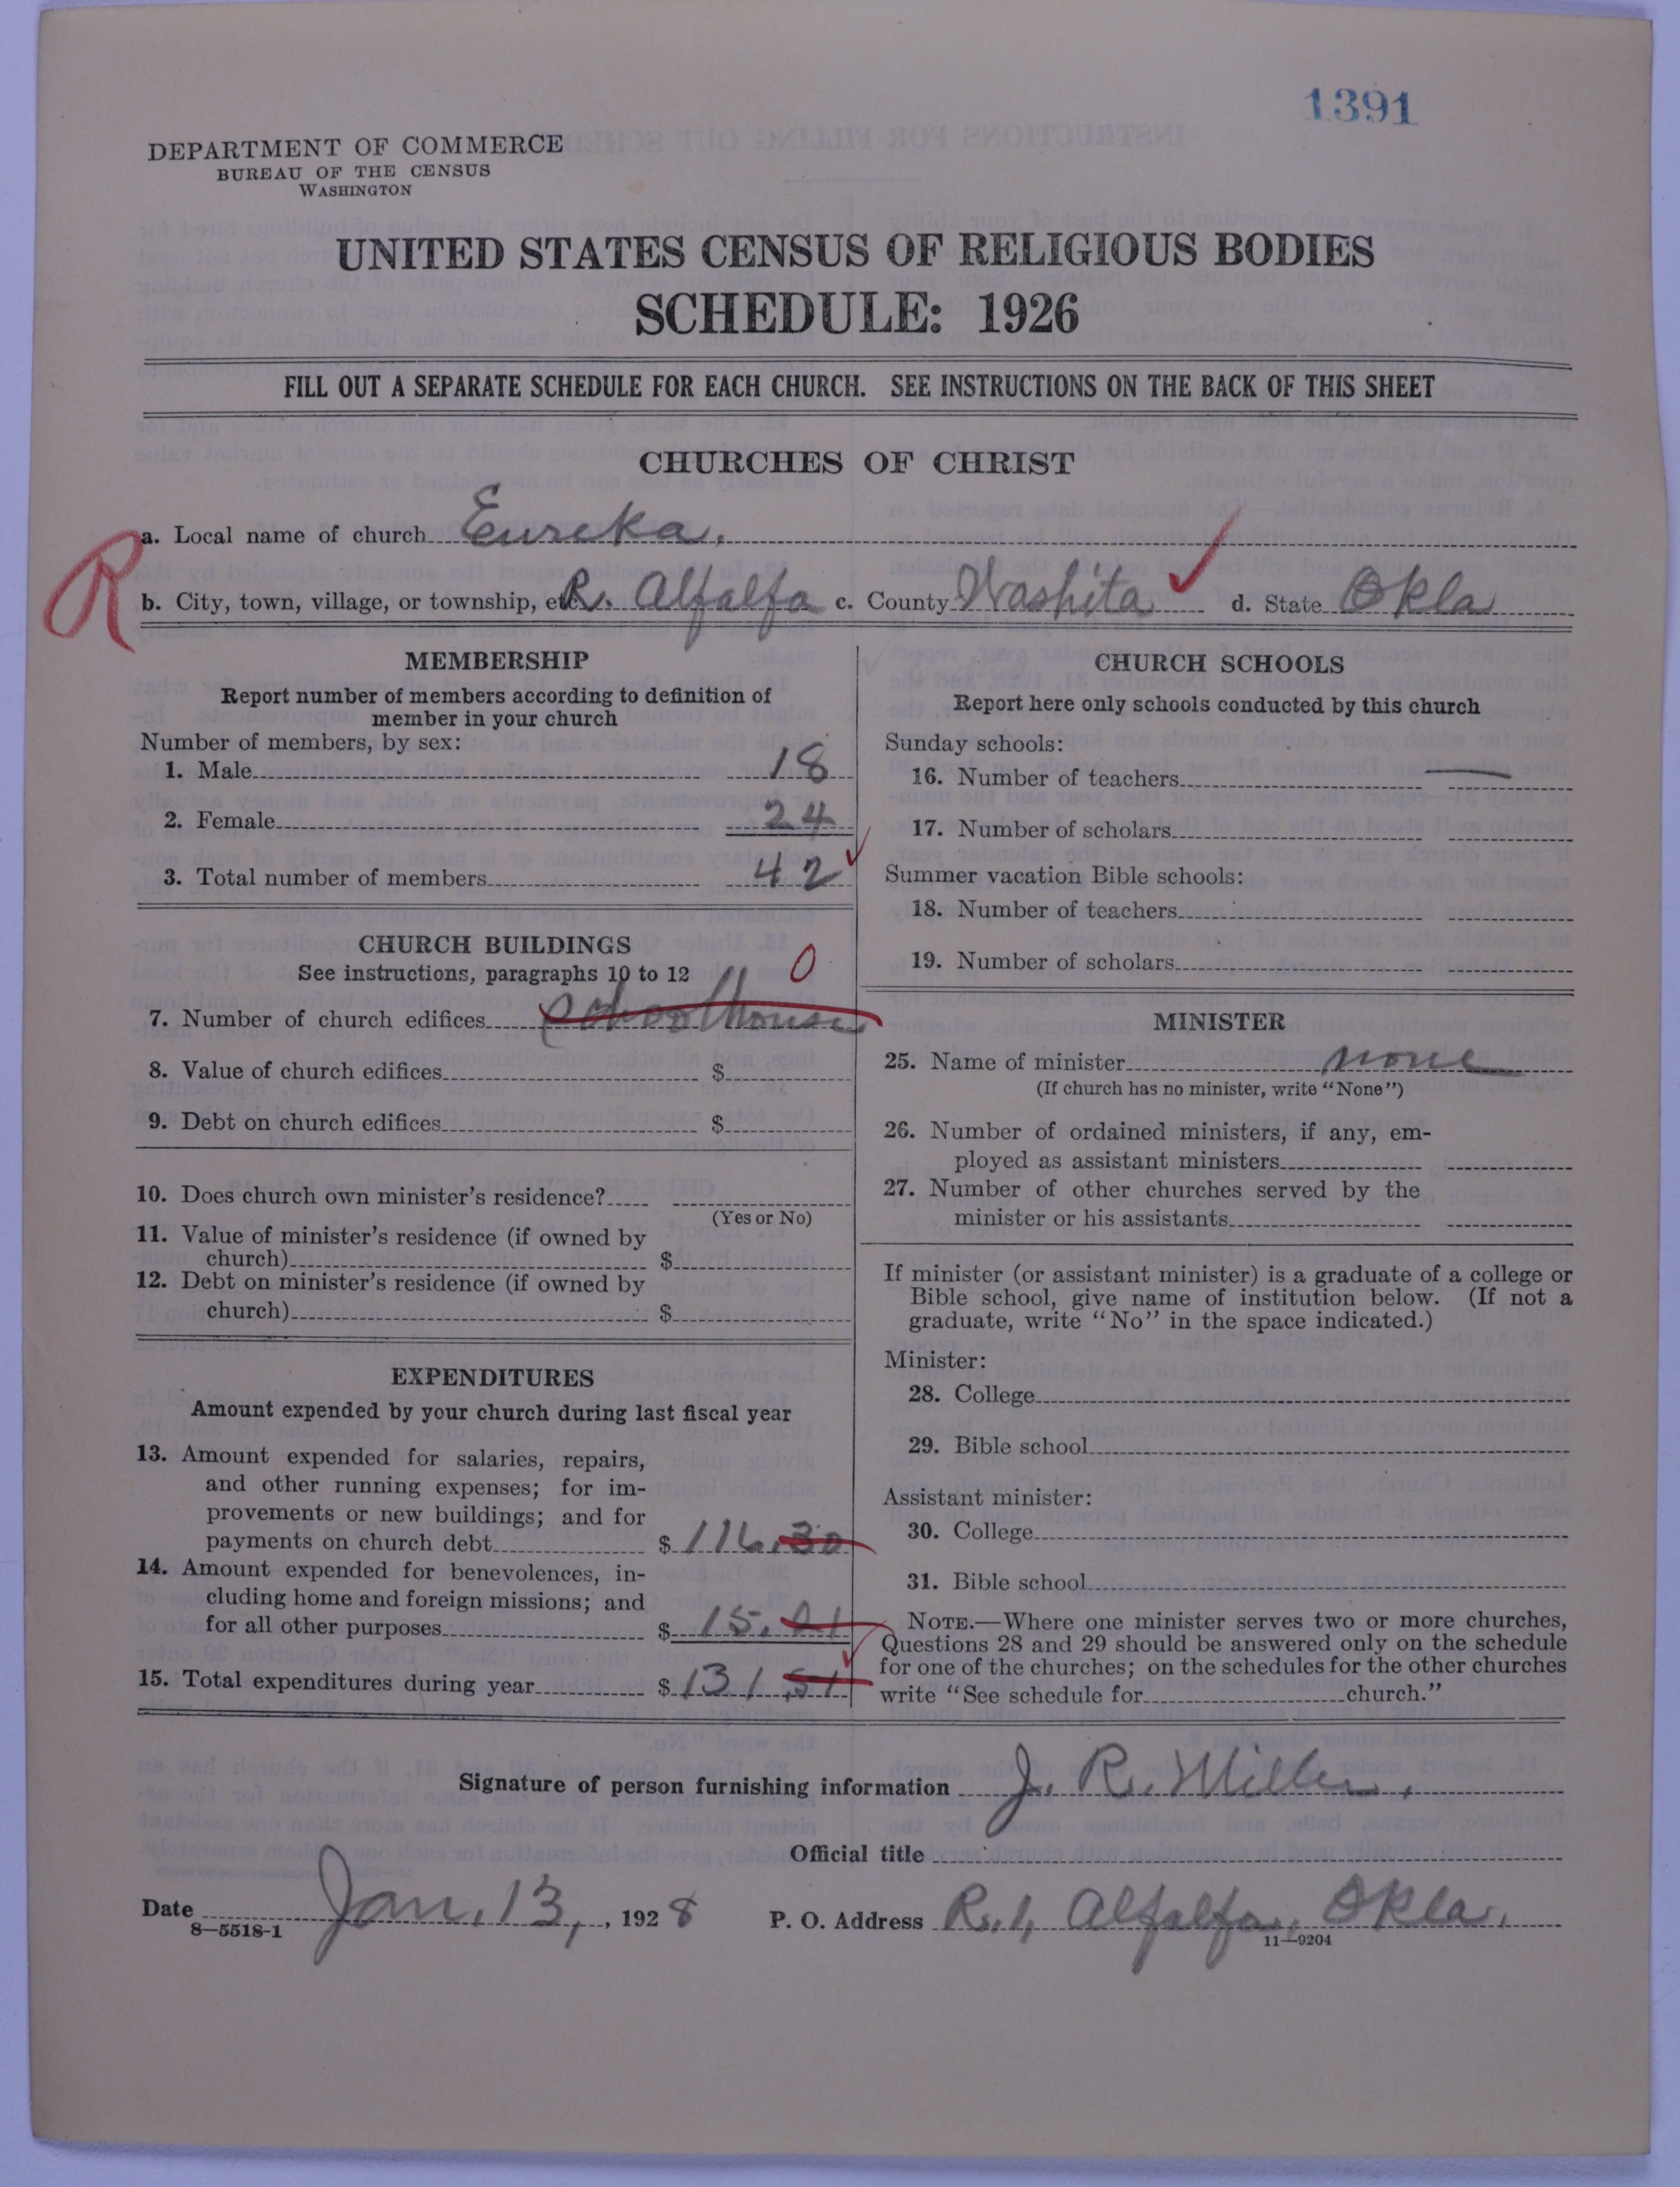 1391
DEPARTMENT OF COMMERCE
BUREAU OF THE CENSUS
WASHINGTON
UNITED STATES CENSUS OF RELIGIOUS BODIES
SCHEDULE: 1926
FILL OUT A SEPARATE SCHEDULE FOR EACH CHURCH. SEE INSTRUCTIONS ON THE BACK OF THIS SHEET
CHURCHES OF CHRIST
a. Local name of church Eureka.
R
b. City, town, village, or township, etc. R. Alfalfa c. County Washita ✓ d. State Okla
MEMBERSHIP
Report number of members according to definition of
member in your church
Number of members, by sex:
1. Male 18
2. Female 24
3. Total number of members 42 ✓
CHURCH BUILDINGS
See instructions, paragraphs 10 to 12 0
7. Number of church edifices schoolhouse
8. Value of church edifices $
9. Debt on church edifices $
10. Does church own minister's residence?
(Yes or No)
11. Value of minister's residence (if owned by
church) $
12. Debt on minister's residence (if owned by
church) $
EXPENDITURES
Amount expended by your church during last fiscal year
13. Amount expended for salaries, repairs,
and other running expenses; for im-
provements or new buildings; and for
payments on church debt $ 116.30
14. Amount expended for benevolences, in-
cluding home and foreign missions; and
for all other purposes $ 15.21
15. Total expenditures during year $ 131.51 ✓
CHURCH SCHOOLS
Report here only schools conducted by this church
Sunday schools:
16. Number of teachers —
17. Number of scholars
Summer vacation Bible schools:
18. Number of teachers
19. Number of scholars
MINISTER
25. Name of minister none
(If church has no minister, write "None")
26. Number of ordained ministers, if any, em-
ployed as assistant ministers
27. Number of other churches served by the
minister or his assistants
If minister (or assistant minister) is a graduate of a college or
Bible school, give name of institution below. (If not a
graduate, write "No" in the space indicated.)
Minister:
28. College
29. Bible school
Assistant minister:
30. College
31. Bible school
NOTE.—Where one minister serves two or more churches,
Questions 28 and 29 should be answered only on the schedule
for one of the churches; on the schedules for the other churches
write "See schedule for church."
Signature of person furnishing information J. R. Miller.
Official title
Date Jan. 13, , 1928 P. O. Address R. 1, Alfalfa, Okla.
8—5518-1
11—9204